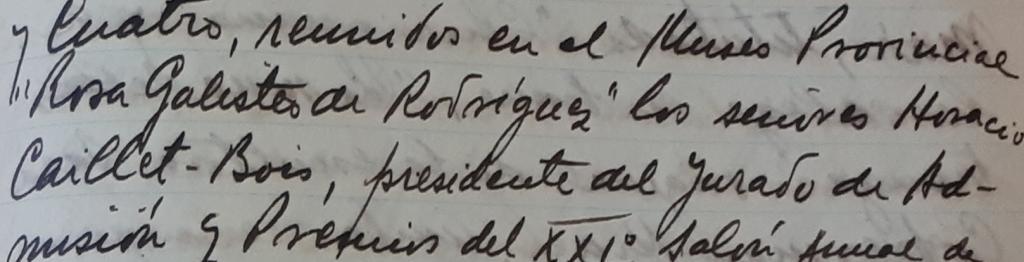 y Cuatro, reunidos en el Museo Provincial
"Rosa Galisteo de Rodríguez" los señores Horacio
Caillet-Bois, presidente del Jurado de Ad-
misión y Premios del XXI° Salón Anual de